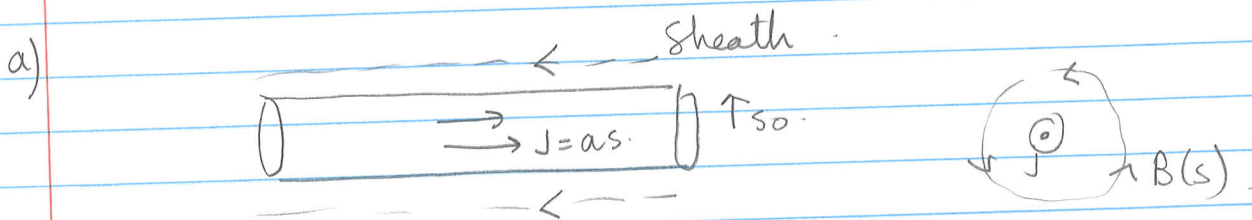 Sheath.
a)
J = as.
↑ so.
J
B(s)